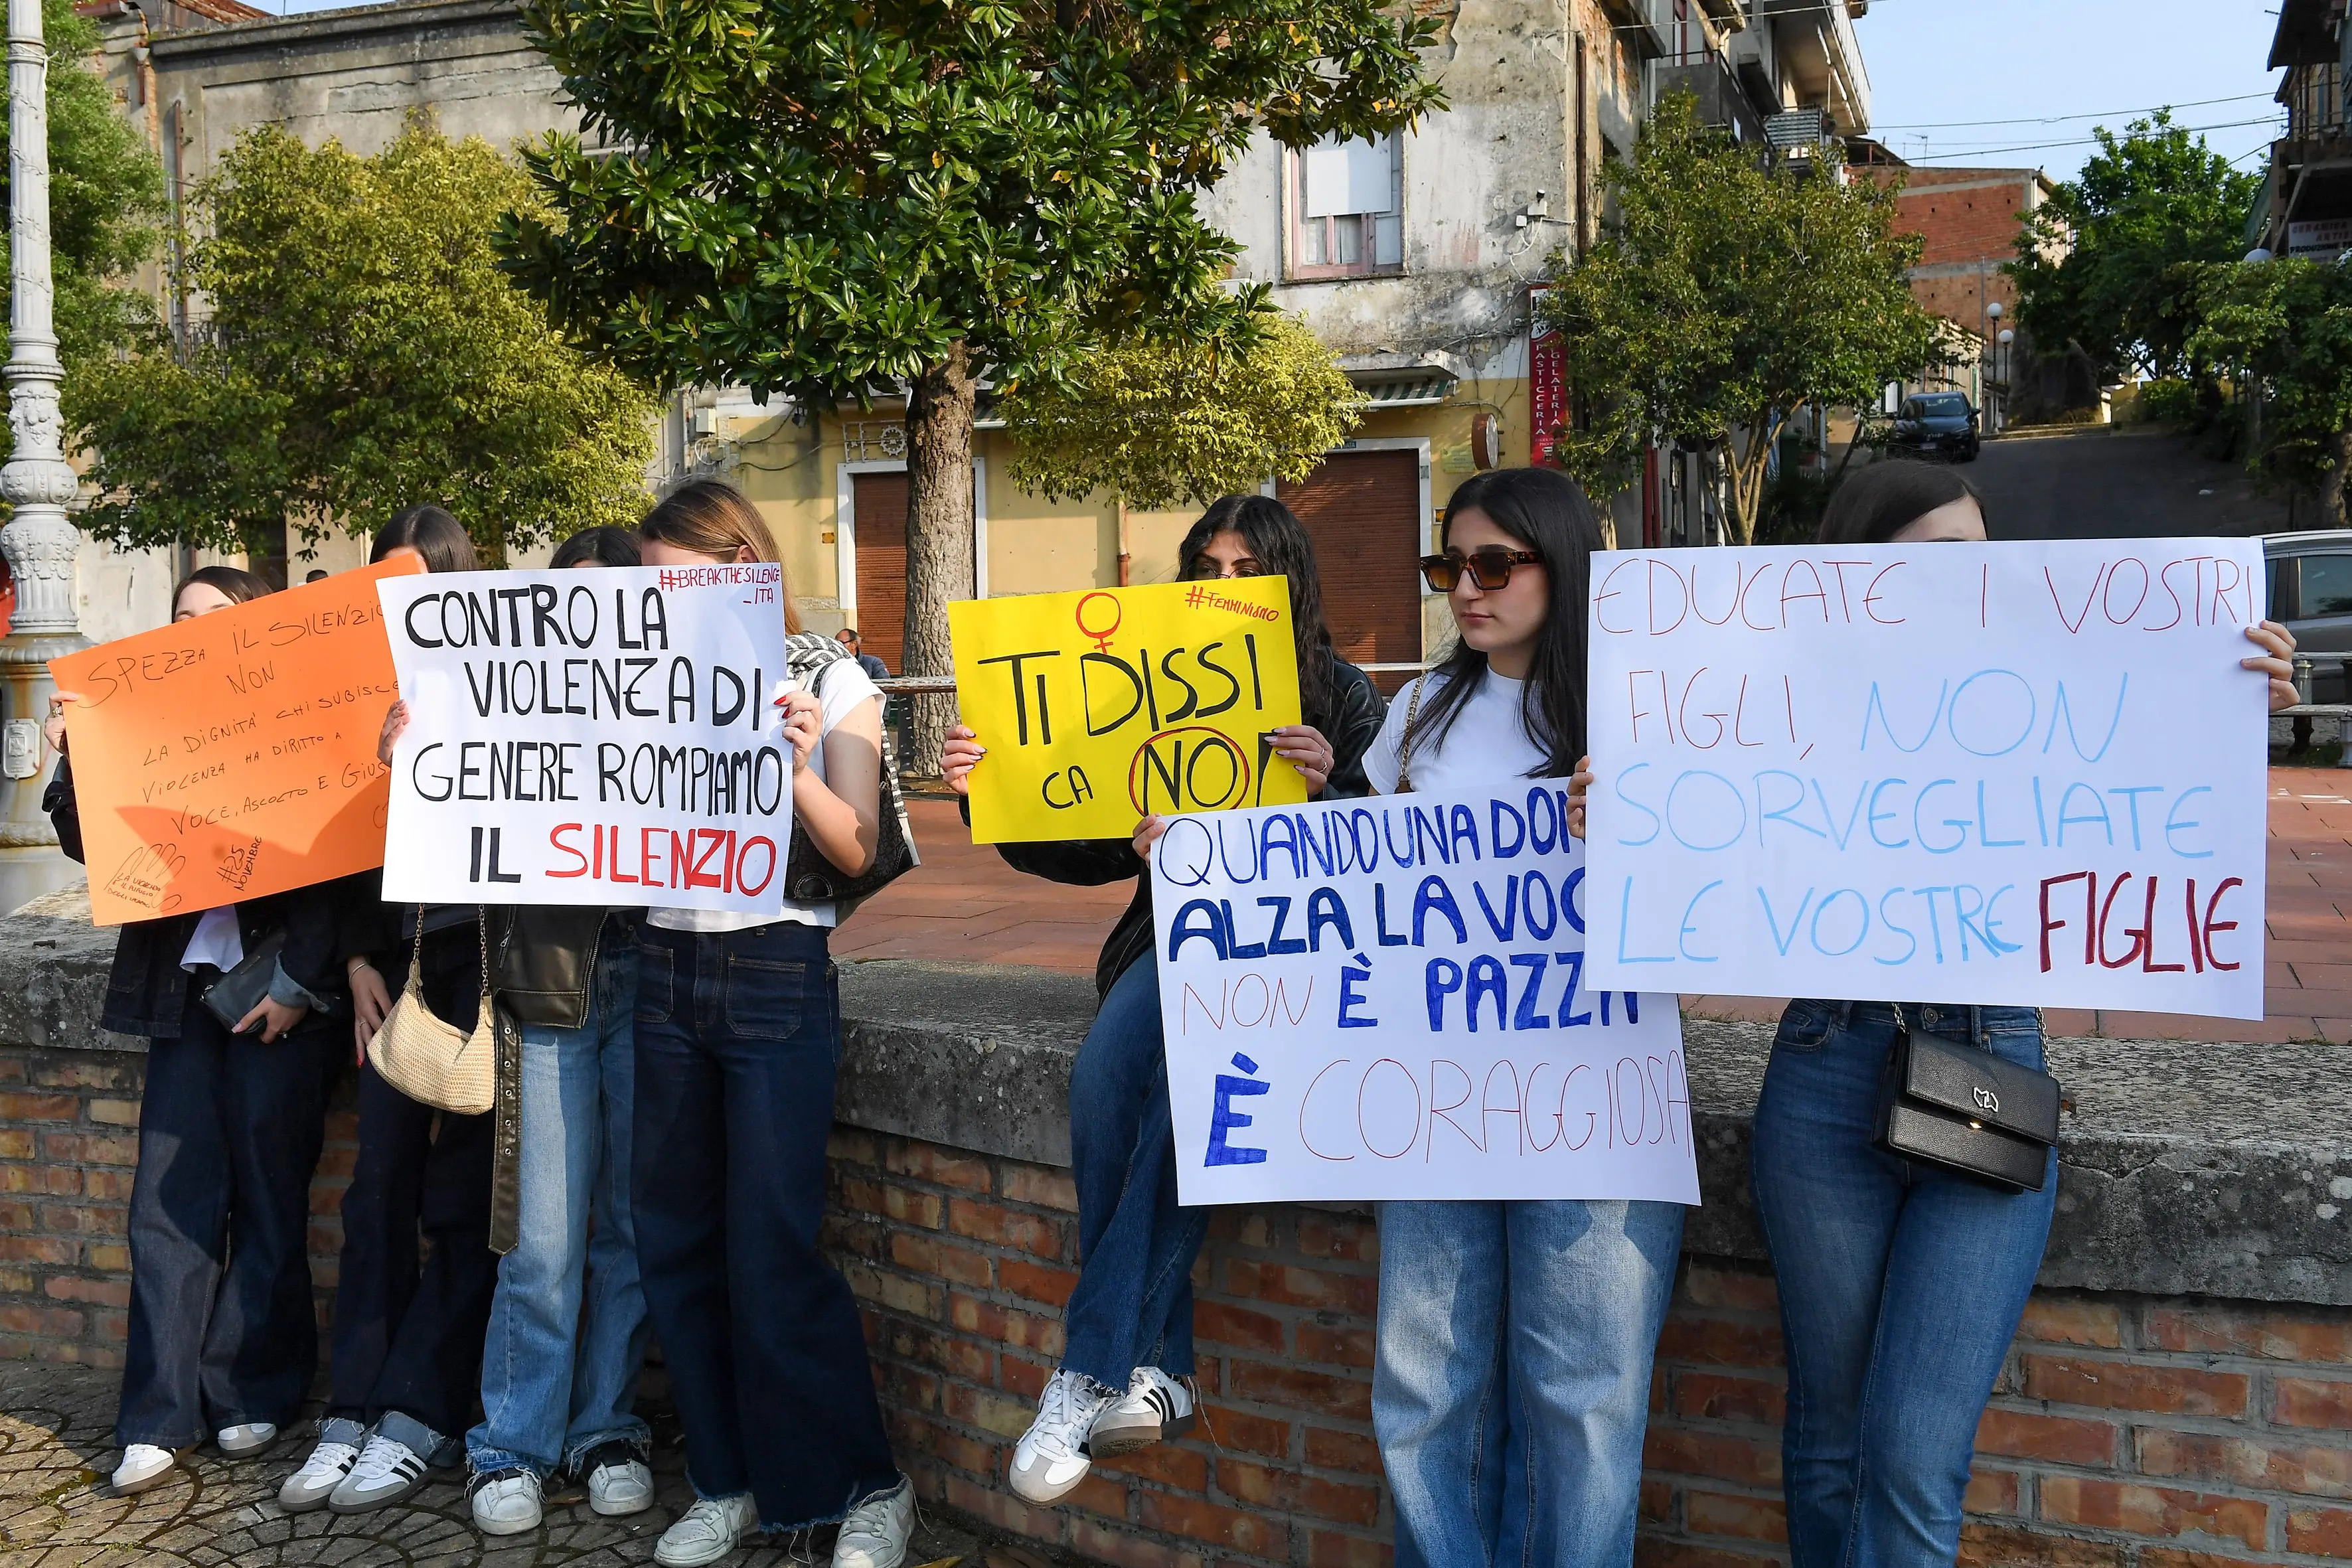 SPEZZA IL SILENZIO
NON
LA DIGNITÀ CHI SUBISCE
VIOLENZA HA DIRITTO A
VOCE, ASCOLTO E
#25
NOVEMBRE
#BREAKTHESILENCE
_ITA
CONTRO LA
VIOLENZA DI
GENERE ROMPIAMO
IL SILENZIO
#FEMMINISMO
TI DISSI
CA NO!
QUANDO UNA DON
ALZA LA VOC
NON È PAZZA
È CORAGGIOSA
EDUCATE I VOSTRI
FIGLI, NON
SORVEGLIATE
LE VOSTRE FIGLIE
PASTICCERIA
GELATERIA